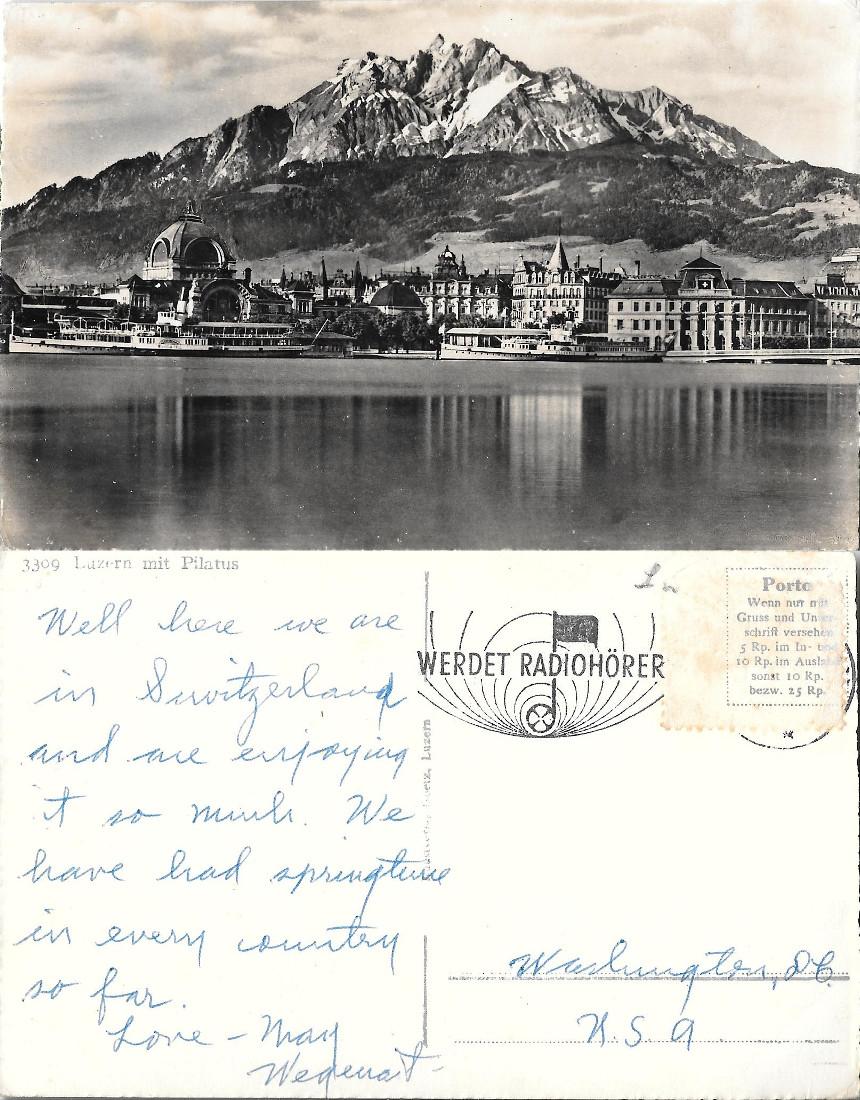 3309 Luzern mit Pilatus
Well here we are
in Switzerland
and are enjoying
it so much. We
have had springtime
in every country
so far.
Love - May
WERDET RADIOHÖRER
Porto
Wenn nur mit
Gruss und Unter-
schrift versehen
5 Rp. im In- und
10 Rp. im Ausland
sonst 10 Rp.
bezw. 25 Rp.
Luzern
Washington, D.C.
U.S.A